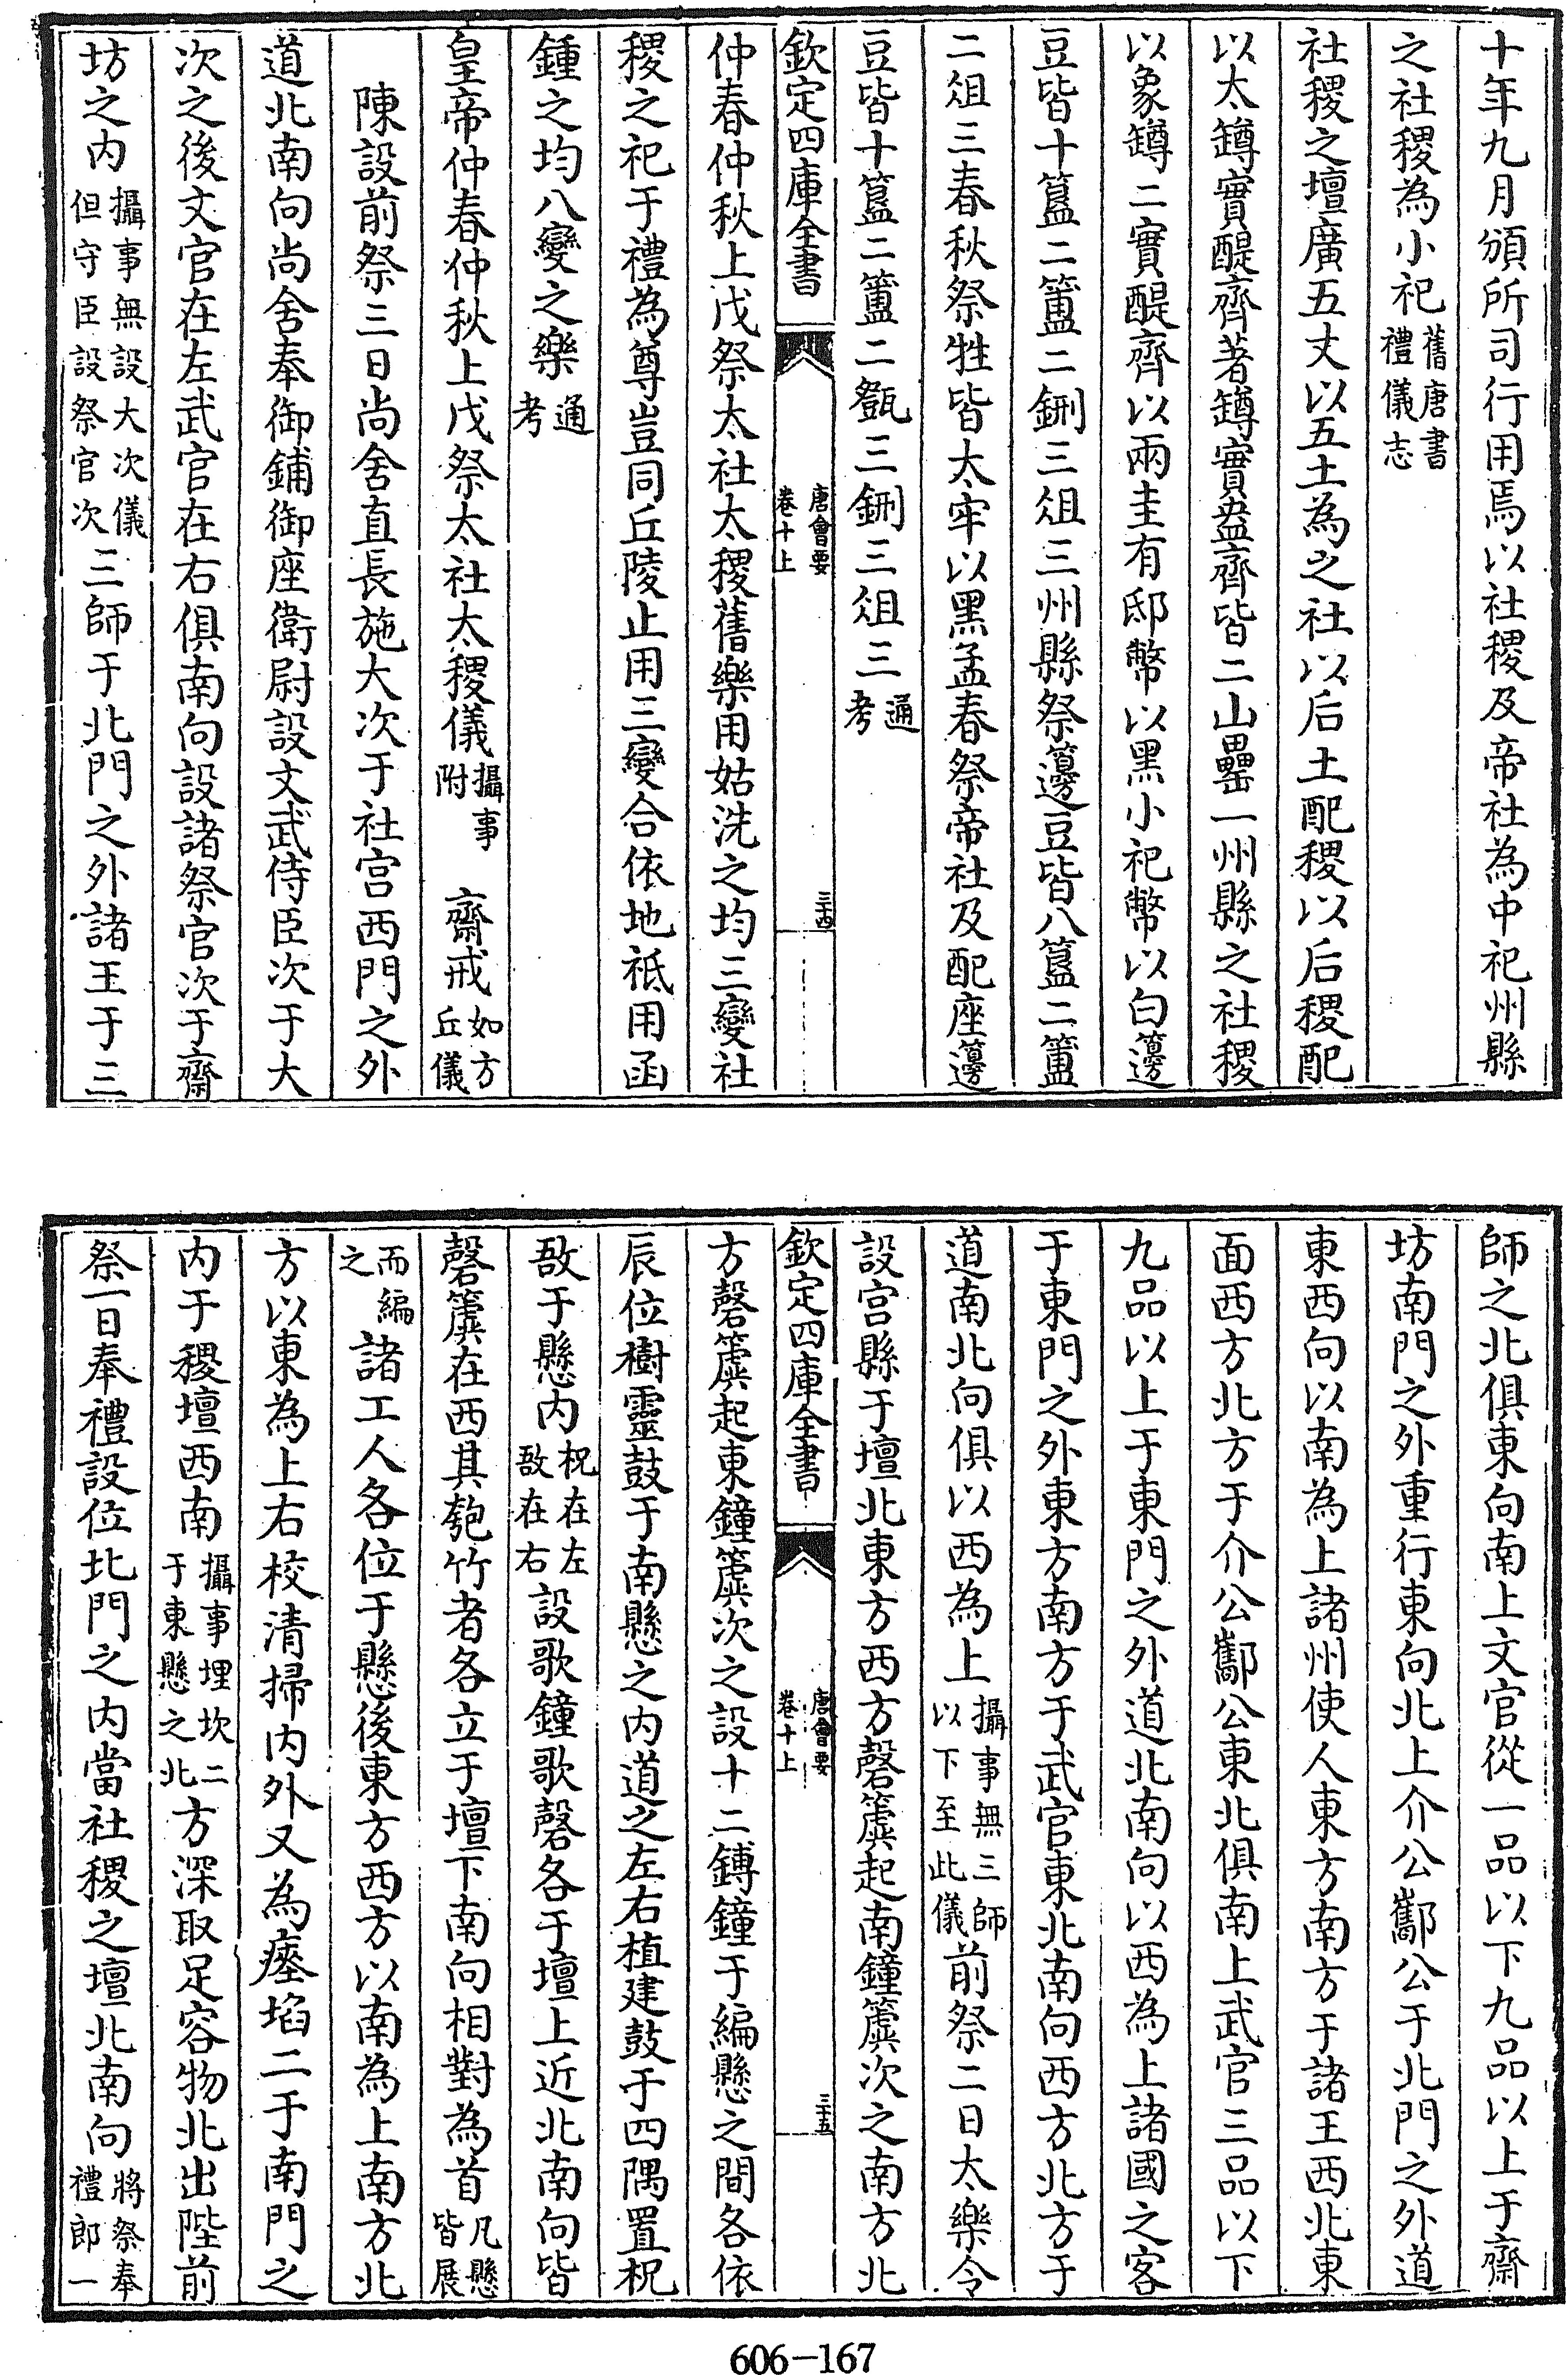 十年九月頒所司行用焉以社稷及帝社為中祀州縣
之社稷為小祀舊唐書禮儀志
社稷之壇廣五丈以五土為之社以后土配稷以后稷配
以太罇實醍齊著罇實盎齊皆二山罍一州縣之社稷
以象罇二實醍齊以兩圭有邸幣以黑小祀幣以白籩
豆皆十簋二簠二鉶三俎三州縣祭籩豆皆八簋二簠
二俎三春秋祭牲皆太牢以黑孟春祭帝社及配座籩
豆皆十簋二簠二㽅三鉶三俎三通考
欽定四庫全書 唐會要卷十上 三十四
仲春仲秋上戊祭太社太稷舊樂用姑洗之均三變社
稷之祀于禮為尊豈同丘陵止用三變合依地祇用函
鍾之均八變之樂通考
皇帝仲春仲秋上戊祭太社太稷儀攝事附 齋戒如方丘儀
陳設前祭三日尚舍直長施大次于社宮西門之外
道北南向尚舍奉御鋪御座衛尉設文武侍臣次于大
次之後文官在左武官在右俱南向設諸祭官次于齋
坊之內攝事無設大次儀但守臣設祭官次三師于北門之外諸王于三
師之北俱東向南上文官從一品以下九品以上于齋
坊南門之外重行東向北上介公酅公于北門之外道
東西向以南為上諸州使人東方南方于諸王西北東
面西方北方于介公酅公東北俱南上武官三品以下
九品以上于東門之外道北南向以西為上諸國之客
于東門之外東方南方于武官東北南向西方北方于
道南北向俱以西為上攝事無三師以下至此儀前祭二日太樂令
設宮縣于壇北東方西方磬簴起南鐘簴次之南方北
欽定四庫全書 唐會要卷十上 三十五
方磬簴起東鐘簴次之設十二鎛鐘于編懸之間各依
辰位樹靈鼓于南懸之內道之左右植建鼓于四隅置柷
敔于懸內柷在左敔在右設歌鐘歌磬各于壇上近北南向皆
磬簴在西其匏竹者各立于壇下南向相對為首凡懸皆展
而編之諸工人各位于懸後東方西方以南為上南方北
方以東為上右校清掃內外又為瘞埳二于南門之
內于稷壇西南攝事埋坎二于東懸之北方深取足容物北出陛前
祭一日奉禮設位北門之內當社稷之壇北南向將祭奉禮郎一
606-167